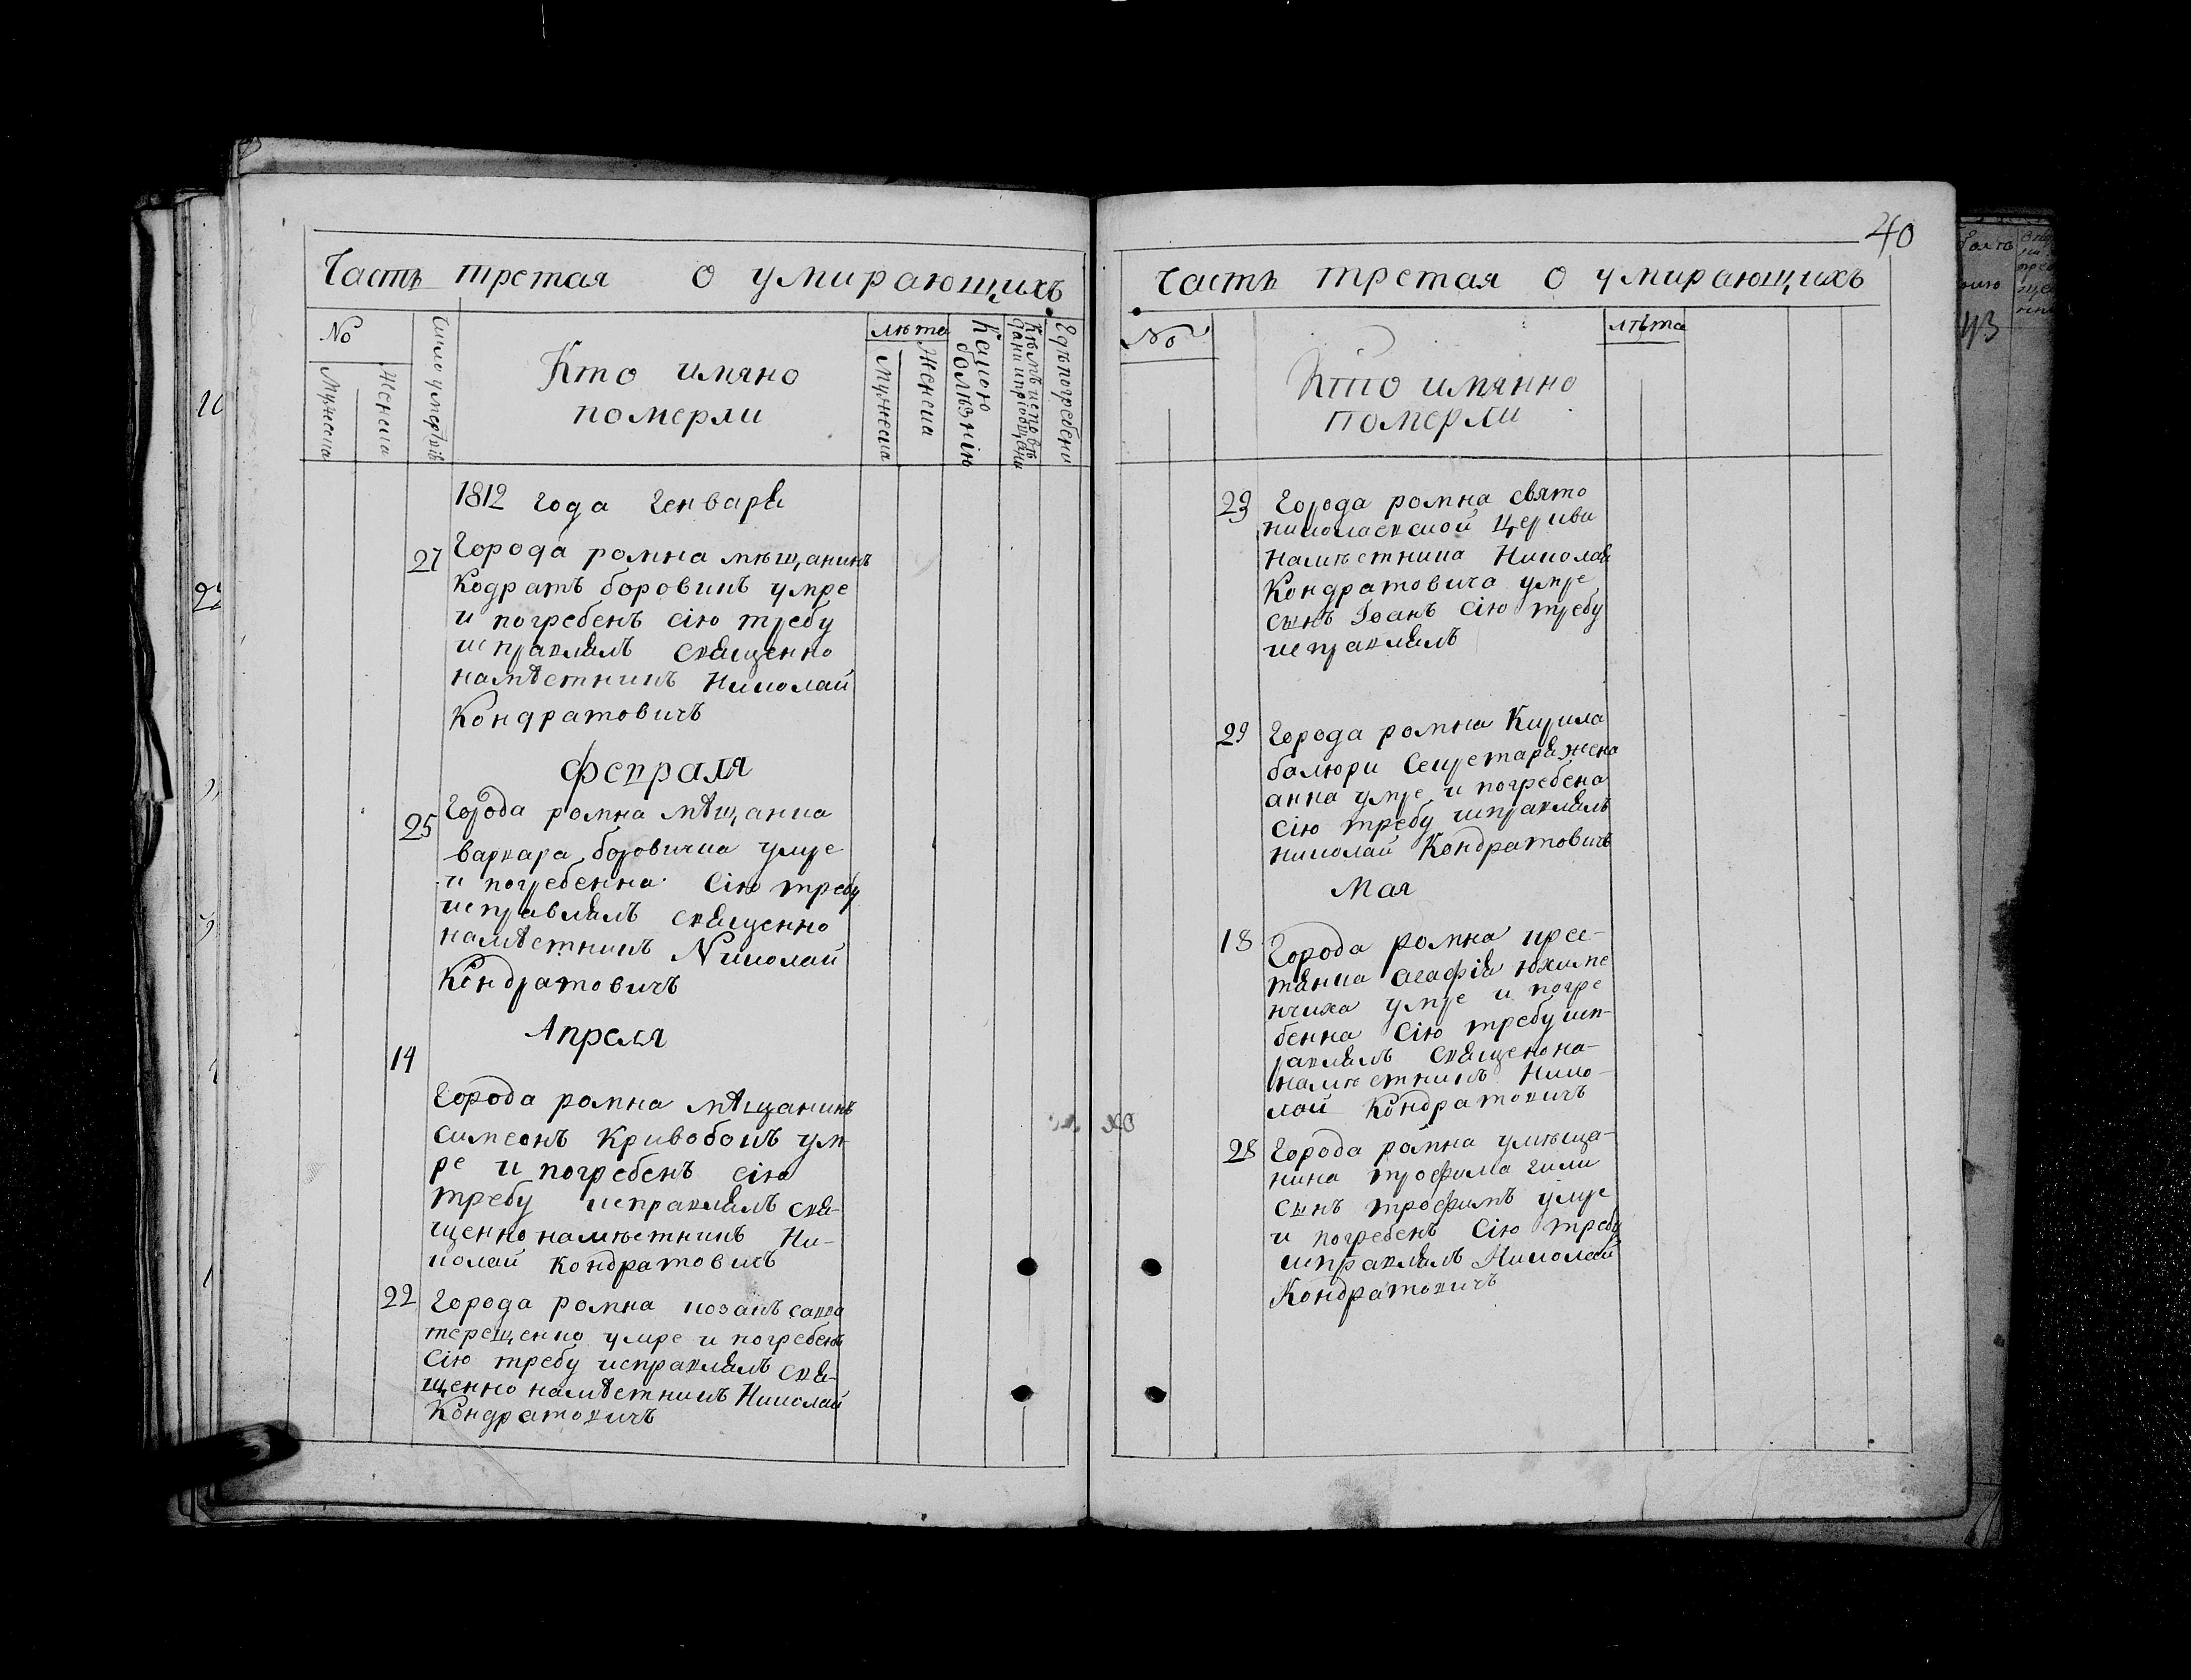 Часть третая о умирающихъ
No
Мужеска
Женска
Число умертвій
Кто имяно
померли
лѣта
Мужеска
Женска
Какою
болѣзнію
Кѣмъ исповѣ
дани и пріобщены
Гдѣ погребены
1812 года Генваря
27 Города ромна мѣщанинъ
Кодратъ боровикъ умре
и погребенъ сію требу
исправлялъ священно
намѣстникъ Николай
Кондратовичъ
февраля
25 Города ромна мѣщанка
варвара боровичка умре
и погребенна сію требу
исправлялъ священно
намѣстникъ Николай
Кондратовичъ
Апреля
14
Города ромна мѣщанинъ
симеонъ Кривобокъ ум
ре и погребенъ сію
требу исправлялъ свя-
щенно намѣстникъ Ни-
колай Кондратовичъ
22 Города ромна козакъ савва
терещенко умре и погребенъ
Сію требу исправлялъ свя-
щенно намѣстникъ Николай
Кондратовичъ
40
Часть третая о умирающихъ
No
Кто имянно
померли
лѣта
23 Города ромна свято
николаевской церкви
намѣстника Николая
Кондратовича умре
сынъ Іоанъ Сію требу
исправлялъ
29 Города ромна Кирила
балюри Секретаря жена
анна умре и погребена
Сію требу исправлялъ
николай Кондратовичъ
Мая
18 Города ромна крес-
тянка агафія юхиме
нчиха умре и погре
бенна Сію требу исп-
равлялъ священона-
намѣстникъ Нико-
лай Кондратовичъ
28 Города ромна умѣща-
нина трофима гили
сынъ трофимъ умре
и погребенъ Сію требу
исправлялъ Николай
Кондратовичъ
43